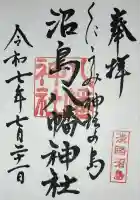 奉拝
くにうみ神話の島
沼島八幡神社
令和七年七月二十一日
淡路沼島